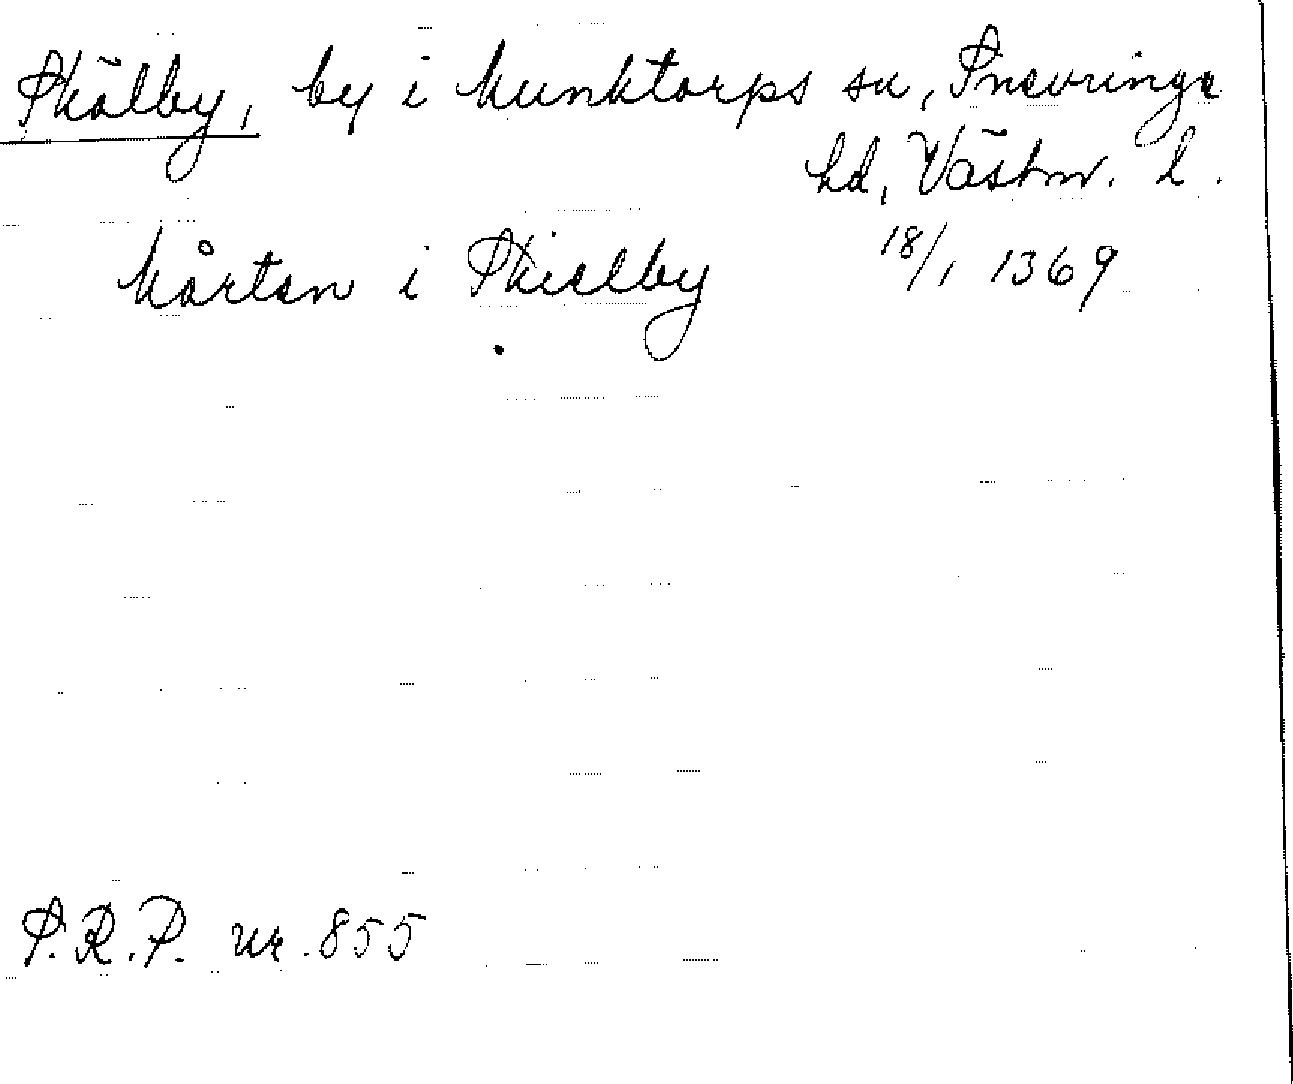 Skälby, by i Munktorps sn, Snevringe
hd, Västm. l.
Mårten i Skielby 18/1 1369
S.R.P. nr. 855